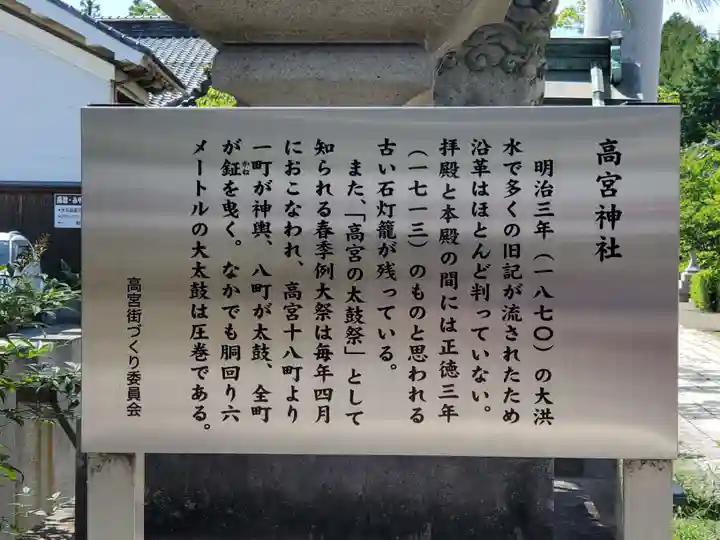 高宮神社
明治三年(一八七〇)の大洪
水で多くの旧記が流されたため
沿革はほとんど判っていない。
拝殿と本殿の間には正徳三年
(一七一三)のものと思われる
古い石灯籠が残っている。
また、「高宮の太鼓祭」として
知られる春季例大祭は毎年四月
におこなわれ、高宮十八町より
一町が神輿、八町が太鼓、全町
が鉦を曳く。なかでも胴回り六
かね
メートルの大太鼓は圧巻である。
高宮街づくり委員会